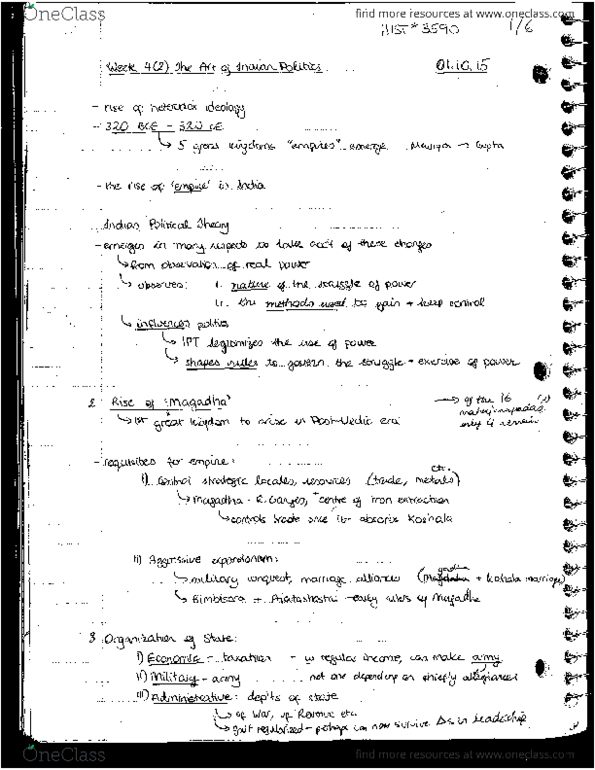 OneClass
find more resources at www.oneclass.com
HIST*3590 1/6
Week 4(2) The Art of Indian Politics 01.10.15
- rise of heterodox ideology
- 320 BCE - 320 CE
↳ 5 great kingdoms "empires" emerge Mauryan → Gupta
- the rise of 'empire' in India
Indian Political Theory
- emerges in many respects to take acc't of these changes
↳ from observation of real power
↳ observes: i. nature of the struggle of power
ii. the methods used to gain + keep control
↳ influences politics
↳ IPT legitimizes the use of power
↳ shapes rules to govern the struggle + exercise of power
2 Rise of 'Magadha'
→ of the 16
only 4 remain
↳ 1st great kingdom to arise in Post-Vedic era
- requisites for empire:
i) Control strategic locales, resources (trade, metals) etc.
↳ Magadha - R. Ganges, centre of iron extraction
↳ controls trade once it absorbs Koshala
ii) Aggressive expansionism:
↳ military conquest, marriage, alliance ( + Koshala marriage)
↳ Bimbisara + Ajatashatru - early rulers of Magadha
3 Organization of State:
i) Economic - taxation - w regular income, can make army
ii) Military - army not one depending on chiefly allegiances
iii) Administrative: dep'ts of state
↳ of War, of Revenue etc.
↳ gov't regularized - perhaps can now survive Δs in leadership
OneClass
find more resources at www.oneclass.com